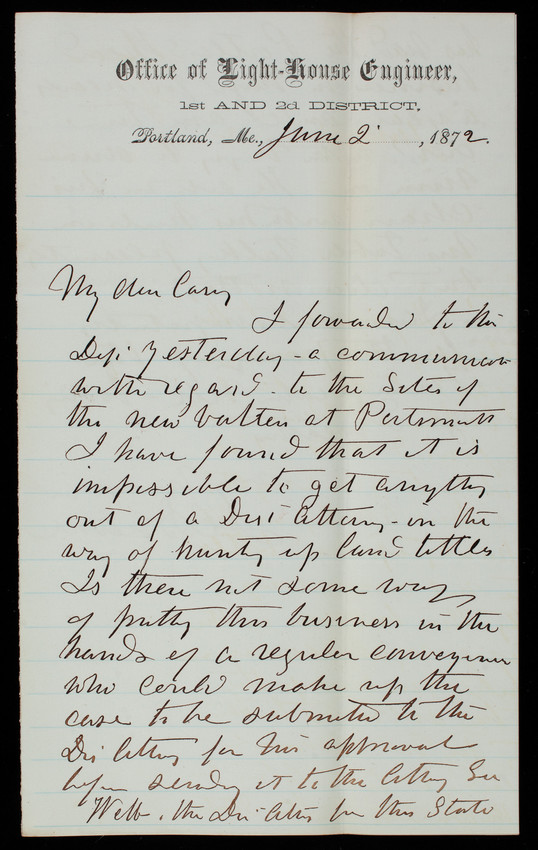 Office of Light-House Engineer,
1st AND 2d DISTRICT,
Portland, Me., June 2 , 1872.
My dear Casey
I forwarded to the
Dep't yesterday - a communication
with regard - to the sites of
the new batteries at Portsmouth
I have found that it is
impossible to get anything
out of a Dist Attorney - in the
way of hunting up land titles
Is there not some way
of putting this business in the
hands of a regular conveyancer
who could make up the
case to be submitted to the
Dis Attny for his approval
before sending it to the Attny Gen
Webb, the Dis Atty for this State